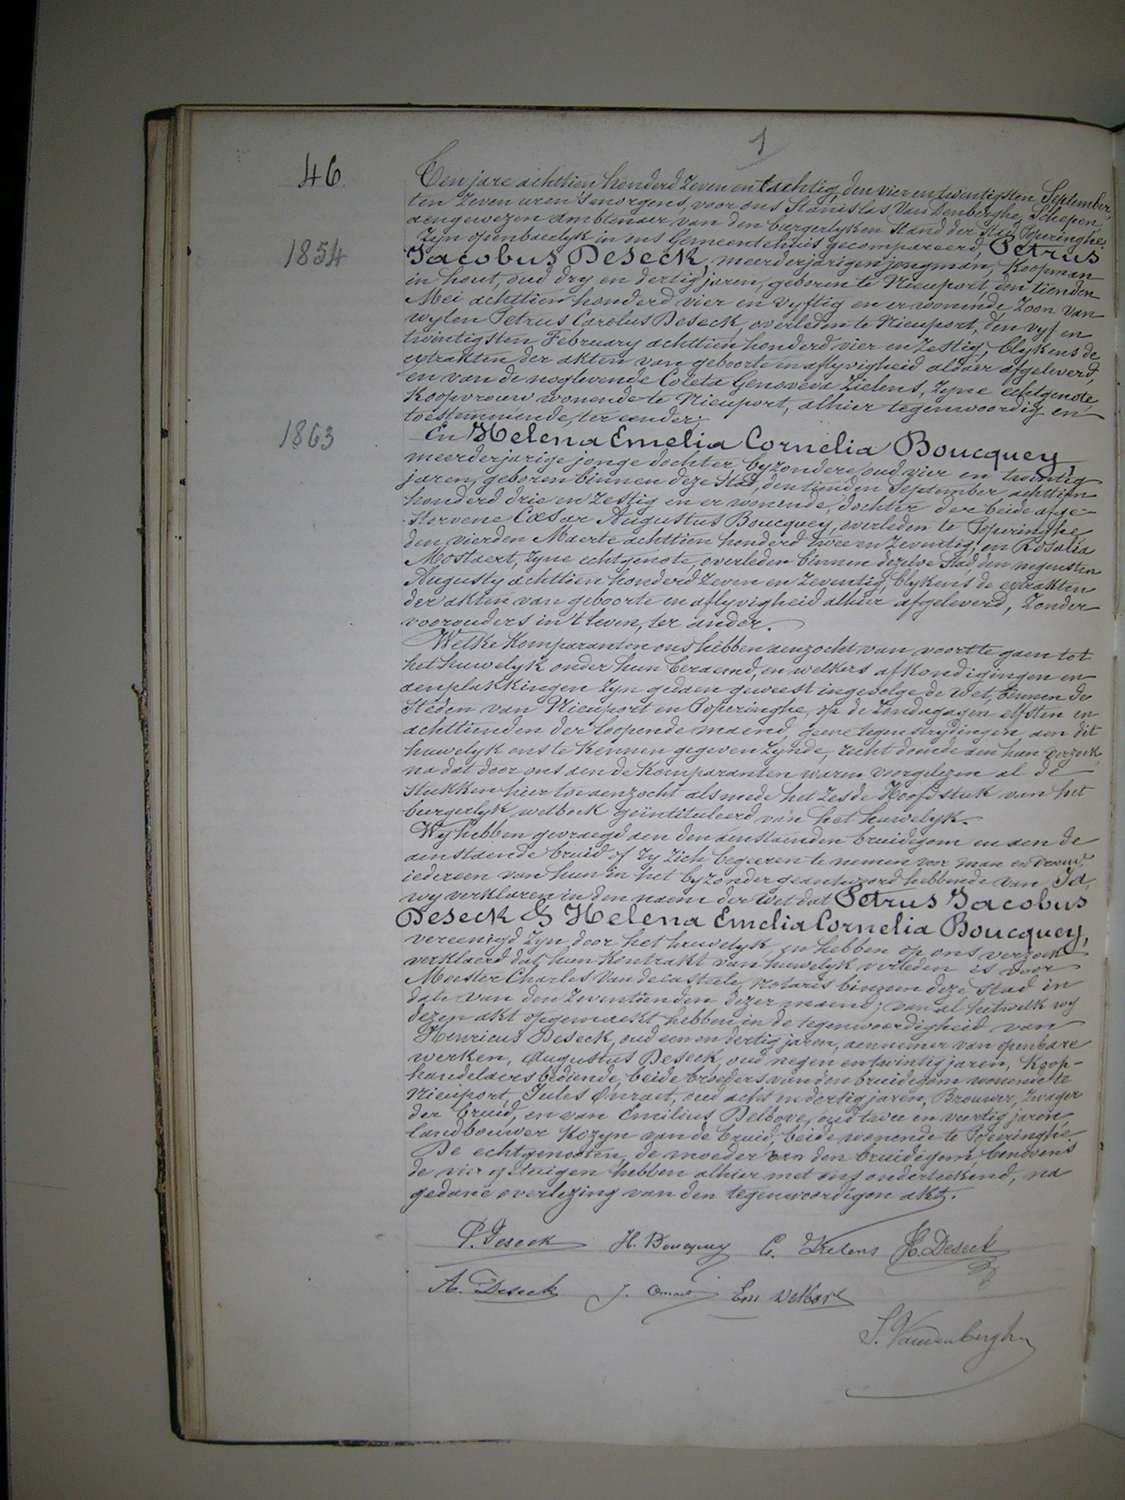 1
46.
Ten jare achttien honderd zeven en tachtig, den vier en twintigsten September,
ten zeven uren 's morgens, voor ons Stanislas Van Denberghe, Schepen
aengewezen ambtenaer van den burgerlyken stand der Stad Poperinghe,
Zyn openbaerlyk in ons Gemeentehuis gecompareerd, Petrus
1854
Jacobus Deseck, meerderjarigen jongman, Koopman
in hout, oud dry en dertig jaren, geboren te Nieuport, den tienden
Mei achttien honderd vier en vyftig en er wonende zoon van
wylen Petrus Carolus Deseck, overleden te Nieuport, den vyf en
twintigsten February achttien honderd vier en zestig, blykens de
extrakten der akten van geboorte en aflyvigheid aldaer afgeleverd,
en van de noglevende Coleta Genoveva Zielens, zyne echtgenote
Koopvrouw wonende te Nieuport, alhier tegenwoordig en
toestemmende, ter eender;
1863
En Helena Emelia Cornelia Boucquey,
meerderjarige jonge dochter byzondere, oud vier en twintig
jaren, geboren binnen deze Stad, den tienden September achttien
honderd drie en zestig en er wonende, dochter der beide afge-
storvene Cæsar Augustus Boucquey, overleden te Poperinghe
den vierden Maerte achttien honderd twee en zeventig, en Rosalia
Mostaert, zyne echtgenote, overleden binnen dezelve Stad den negensten
Augusty achttien honderd zeven en zeventig, blykens de extrakten
der akten van geboorte en aflyvigheid alhier afgeleverd, zonder
voorouders in 't leven, ter ander.
Welke Komparanten ons hebben aenzocht van voort te gaen tot
het huwelyk onder hun beraemd, en welkers afkondigingen en
aenplakkingen zyn gedaen geweest ingevolge de wet, binnen de
Steden van Nieuport en Poperinghe, op de zondagagen elfsten en
achttienden der loopende maend, geene tegenstrydingen aen dit
huwelyk ons te kennen gegeven zynde, recht doende aen hun verzoek
na dat door ons aen de Komparanten waren voorgelezen al de
stukken hier toe aenzocht alsmede het zesde Hoofdstuk van het
burgerlyk wetboek geïntituleerd van het huwelyk.
Wy hebben gevraegd aen den aenstaenden bruidigom en aen de
aenstaende bruid of zy zich begeeren te nemen voor man en vrouw,
iedereen van hun in het byzonder geantwoord hebbende van Ja,
wy verklaren in den naem der Wet dat Petrus Jacobus
Deseck & Helena Emelia Cornelia Boucquey,
vereenigd zyn door het huwelyk en hebben op ons verzoek
verklaerd dat hun kontrakt van huwelyk verleden is voor
Meester Charles Van de Casteele, notaris binnen deze Stad in
date van den zeventienden dezer maend; van al hetwelk wy
dezen akt opgemaekt hebben in de tegenwoordigheid van
Henricus Deseck, oud een en dertig jaren, aennemer van openbare
werken, Augustus Deseck, oud negen en twintig jaren, Koop-
handelaers bediende, beide broeders van den bruidegom wonende te
Nieuport, Jules Onraet, oud acht en dertig jaren, Brouwer, zwager
der bruid, en van Emilius Delbove, oud twee en veertig jaren,
landbouwer Kozyn van de bruid, beide wonende te Poperinghe.
De echtgenooten, de moeder van den bruidegom, benevens
de vier getuigen hebben alhier met ons onderteekend, na
gedane overlezing van den tegenwoordigen akt.
P. Deseck H. Boucquey C. Zielens H. Deseck
A. Deseck J. Onraet Em Delbove
S. Vandenberghe